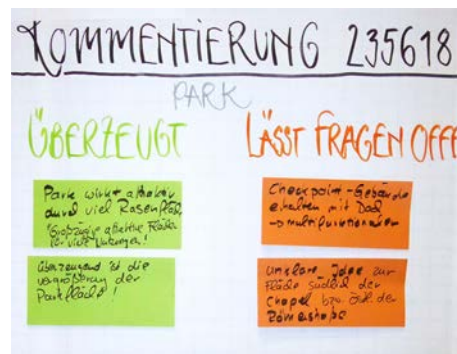 KOMMENTIERUNG 235618
PARK
ÜBERZEUGT
LÄSST FRAGEN OFFE
Park wirkt attraktiv
durch viel Rasenfläche
Großzügige attraktive Fläche
für viele Nutzungen!
Überzeugend ist die
vergrößerung der
Parkfläche!
Checkpoint-Gebäude
erhalten mit Dach
→ multifunktionaler
Unklare Idee zur
Fläche südlich der
Chapel bzw. östl. der